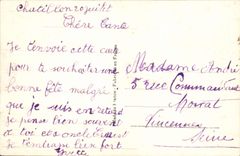 Chatillon 20 juillet
Chère Tante
Je t'envoie cette carte
pour te souhaiter une
bonne fête malgré
que je suis en retard
je pense bien souvent
a toi et a oncle Ernest
Je t'embrasse bien fort
Madame André
5 rue Commandant
Mowat
Vincennes
Seine